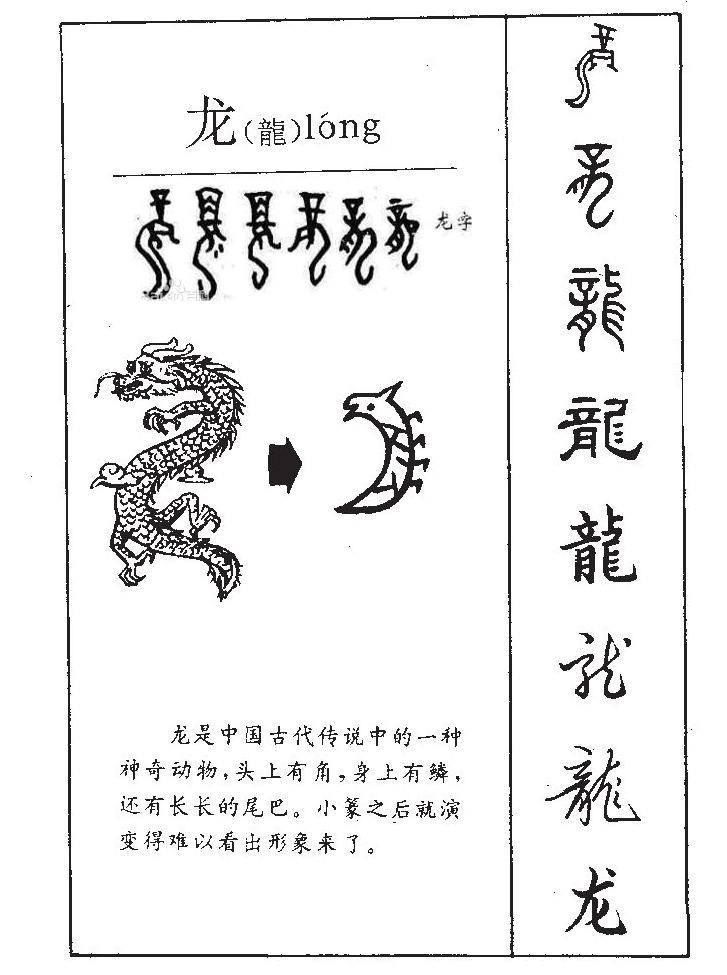 龙(龍)lóng
龙字
龙是中国古代传说中的一种
神奇动物,头上有角,身上有鳞,
还有长长的尾巴。小篆之后就演
变得难以看出形象来了。
龍
龍
龍
龍
龍
龙
龍
龙